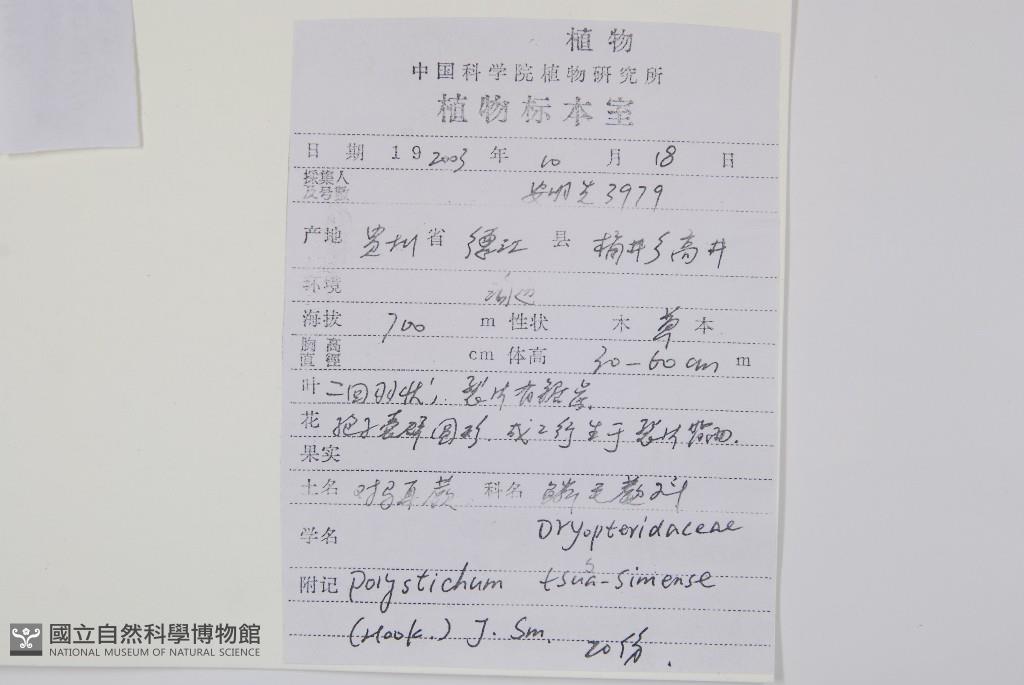 植物
中国科学院植物研究所
植物标本室
日期 19 2003 年 10 月 18 日
採集人
及号数 安明先 3979
产地 贵州 省 德江 县 桶井乡高井
环境 沟边
海拔 700 m 性状 木 草 本
胸高
直徑 cm 体高 30-60cm m
叶 二回羽状, 裂片有锯齿.
花 孢子囊群圆形, 成2行生于裂片背面.
果实
土名 对马耳蕨 科名 鳞毛蕨科
学名 Dryopteridaceae
附记 Polystichum tsus-simense
(Hook.) J. Sm. 20份.
國立自然科學博物館
NATIONAL MUSEUM OF NATURAL SCIENCE